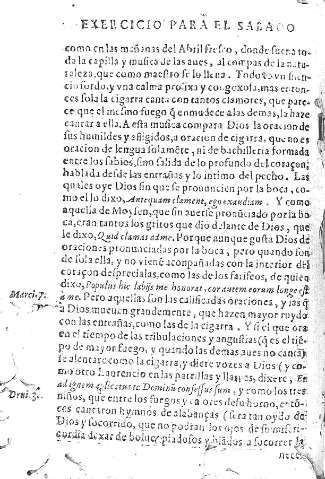 EXERCICIO PARA EL SABADO
como en las mañanas del Abril fresco, donde suena to-
da la capilla y musica de las aues, al compas de la natu-
raleza, que como maestro se lo lleua. Todo es vn silen-
cio sordo, y vna calma prolixa y congoxosa, mas enton-
ces sola la cigarra canta con tantos clamores, que pare-
ce que el mesmo fuego q̃ enmudece a las demas, la haze
cantar a ella. A esta musica compara Dios la oracion de
sus humildes y afligidos, a oracion de cigarra, que no es
oracion de lengua solamẽte, ni de bachilleria formada
entre los labios, sino salida de lo profundo del coraçon,
hablada desde las entrañas y lo intimo del pecho. Las
quales oye Dios sin que se pronuncien por la boca, co-
mo el lo dixo, Antequam clament, ego exaudiam. Y como
aquella de Moysen, que sin auerse pronunciado por la bo-
ca, eran tantos los gritos que dio delante de Dios, que
le dixo, Quid clamas ad me. Porque aunque gusta Dios de
oraciones pronunciadas por la boca, pero quando son
de sola ella, y no viene acompañadas con la interior del
coraçon desprecialas, como las de los fariseos, de quien
dixo, Populus hic labijs me honorat, cor autem eorum longe est
Marci. 7. à me. Pero aquellas son las calificadas oraciones, y las q̃
a Dios mueuen grandemente, que hazen mayor ruydo
con las entrañas, como las de la cigarra. Y si el que ora
en el tiempo de las tribulaciones y angustias (q̃ es el tiẽ-
po de mayor fuego, y quando las demas aues no cantan)
se alentare como la cigarra, y diere vozes a Dios (y co-
mo otro Laurencio en las parrillas y llamas, dixere, En
ad ignem applicatus te Dominũ confessus sum, y como los tres
Dani. 3. niños, que entre los fuegos y calores del horno, entõ-
ces cantaron hymnos de alabanças) sera tan oydo de
Dios y socorrido, que no podran los ojos de su miseri-
cordia dexar de boluer piadosos y blãdos a socorrer la
nece-